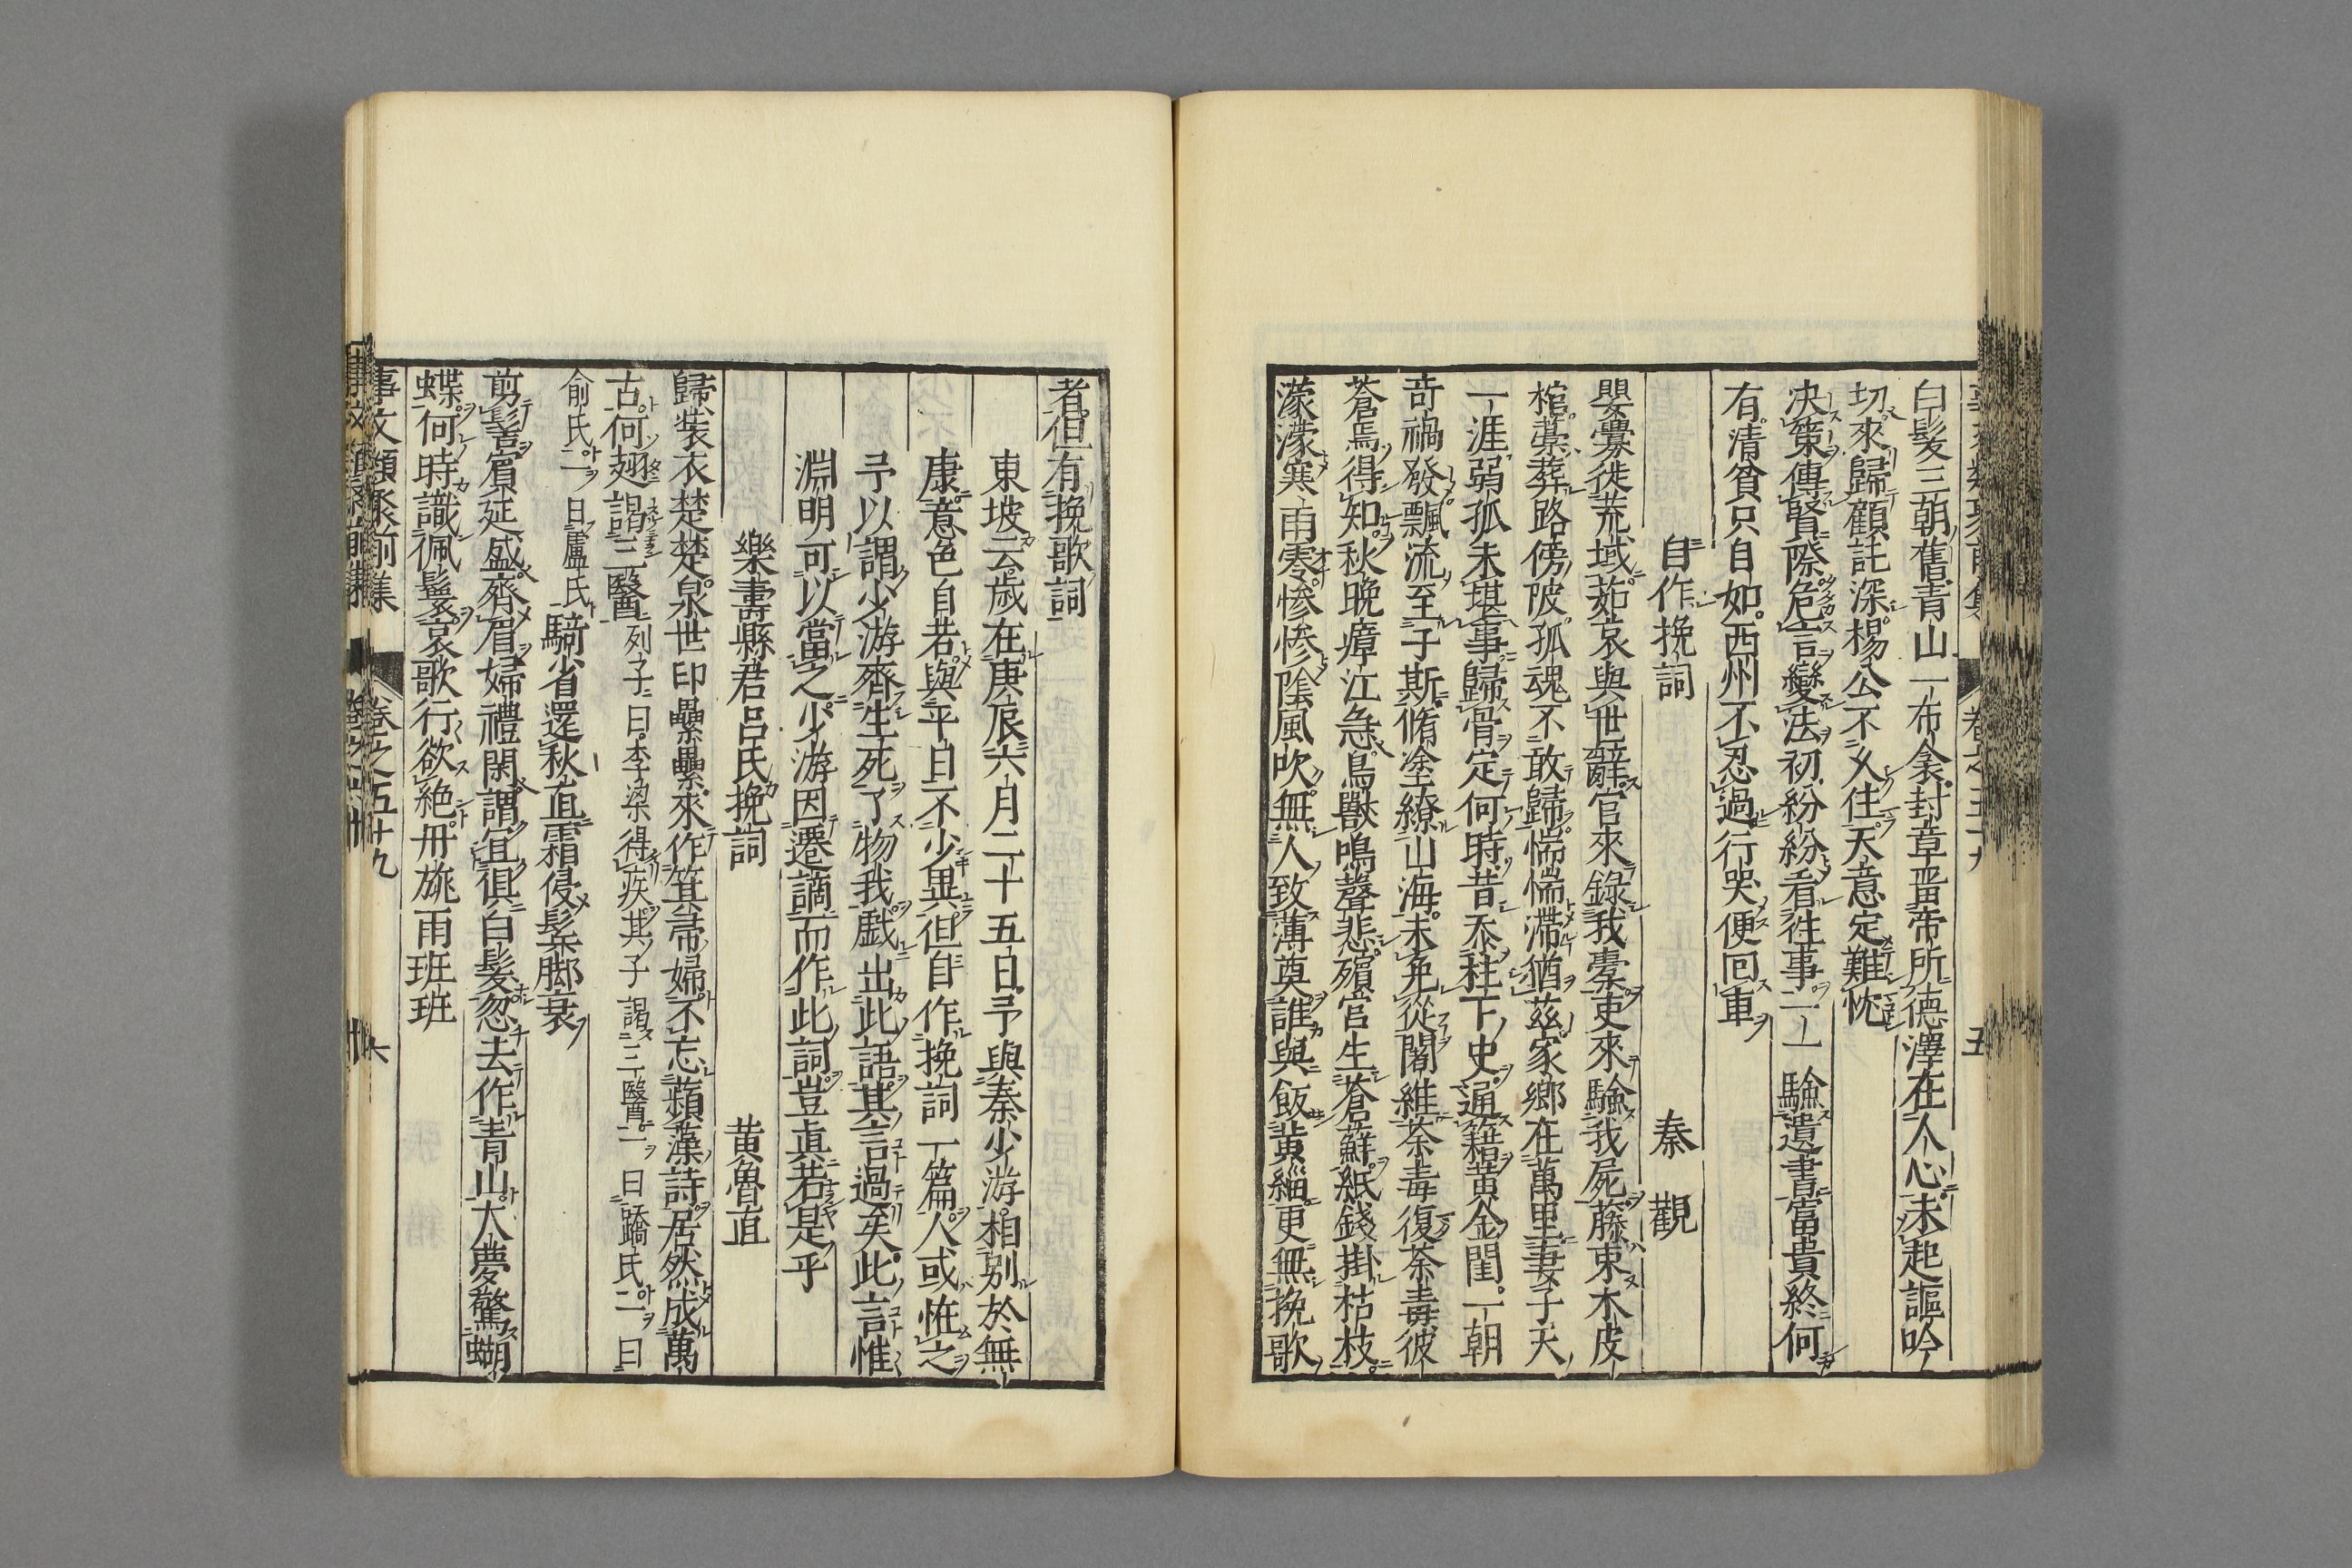 白髮三朝舊青山一布衾封章畱帝所德澤在人心未起謳吟
切來歸顧託深楊公不久住天意定難忱
決策傳賢際危言變法初紛紛看徃事一一驗遺書富貴終何
有清貧只自如西州不忍過行哭便回車
自作挽詞 秦觀
嬰釁徙荒域茹哀與世辭官來錄我橐吏來驗我屍藤束木皮
棺藁葬路傍陂孤魂不敢歸惴惴滯猶茲家鄉在萬里妻子天
一涯弱孤未堪事歸骨定何時昔忝柱下史通籍黃金閨一朝
奇禍發飄流至于斯脩塗繚山海未免從闍維荼毒復荼毒彼
蒼焉得知秋晚瘴江急鳥獸鳴聲悲殯宮生蒼蘚紙錢掛枯枝
濛濛寒雨零慘慘陰風吹無人致薄奠誰與飯黃緇更無挽歌
事文類聚前集 卷之五十九 五
者但有挽歌詞
東坡云歲在庚辰六月二十五日予與秦少游相別於無
康意色自若與平日不少異但自作挽詞一篇人或怪之
予以謂少游齊生死了物我戲出此語其言過矣此言惟
淵明可以當之少游因遷謫而作此詞豈眞若是乎
樂壽縣君呂氏挽詞 黄魯直
歸裝衣楚楚泉世印纍纍來作箕帚婦不忘蘋藻詩居然成萬
古何翅謁三醫列子曰季梁得疾其子謁三醫一曰矯氏二曰
俞氏三曰盧氏騎省還秋直霜侵髩脚衰
剪髻賓延盛齊眉婦禮閑謂宜俱白髮忽去作青山大夢驚蝴
蝶何時識佩鬟哀歌行欲絕丹旐雨班班
事文類聚前集 卷之五十九 六